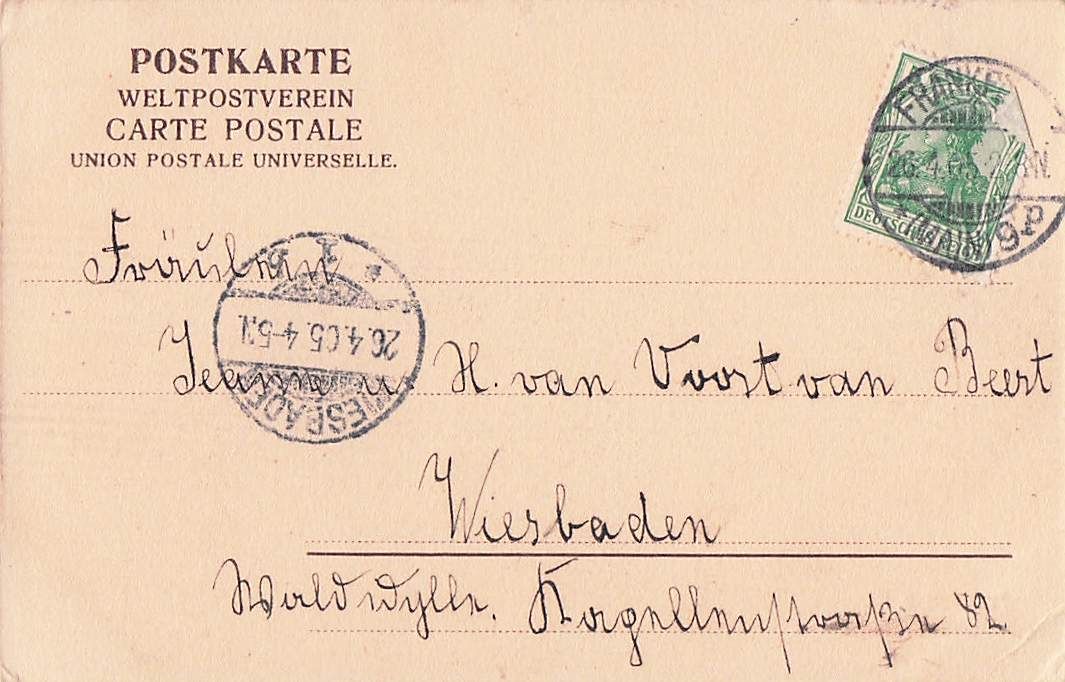 POSTKARTE
WELTPOSTVEREIN
CARTE POSTALE
UNION POSTALE UNIVERSELLE.
FRANKF
26.4.05. 2 N.
MAIN 9.P
DEUTSCHES REICH
Fräulein
Jeanne u. H. van Voort van Beert
Wiesbaden
Waldidylle. Kapellenstraße 82.
WIESBADEN
26.4.05.4-5N.